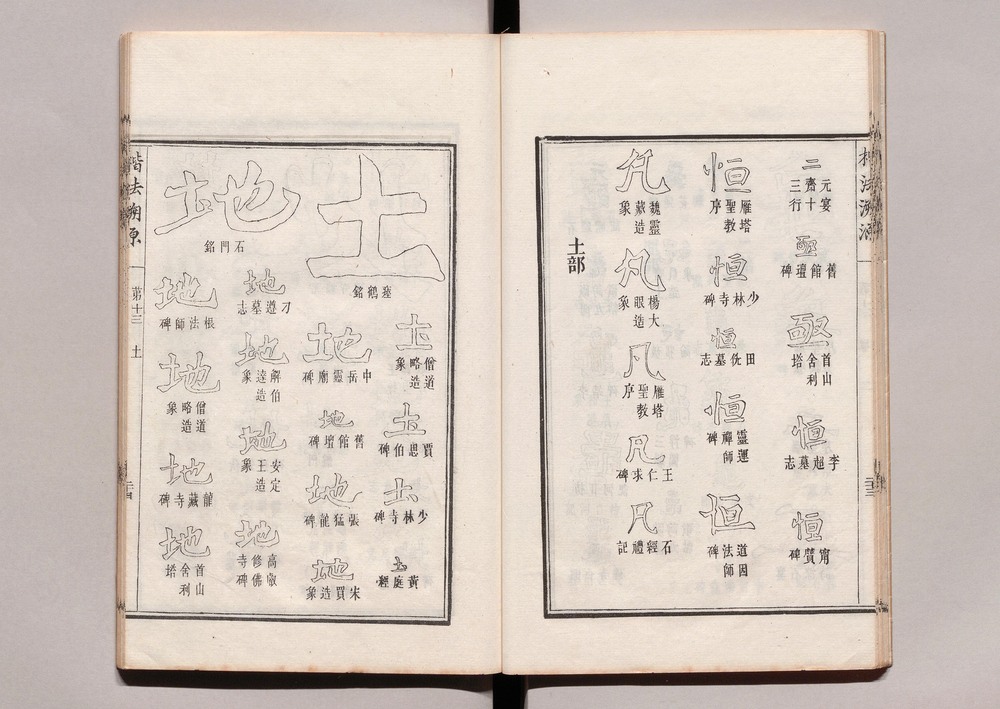 二
元宴
齋十
三行
亟
舊館壇碑
亟
首山
舍利
塔
恒
李超墓志
恒
甯贙碑
恒
雁塔
聖教
序
恒
少林寺碑
恒
田侁墓志
恒
靈運
禪師
碑
恒
道因
法師
碑
凡
魏靈
藏造
象
凡
楊大
眼造
象
凡
雁塔
聖教
序
凡
王仁求碑
凡
石經禮記
土部
土
瘞鶴銘
土
僧道
略造
象
土
賈思伯碑
土
少林寺碑
土
黃庭經
地
石門銘
地
中岳靈廟碑
地
舊館壇碑
地
張猛龍碑
地
朱買造象
地
刁遵墓志
地
解伯
逵造
象
地
安定
王造
象
地
高敞
修佛
寺碑
地
根法師碑
地
僧道
略造
象
地
龍藏寺碑
地
首山
舍利
塔
楷法溯原
第十三
土